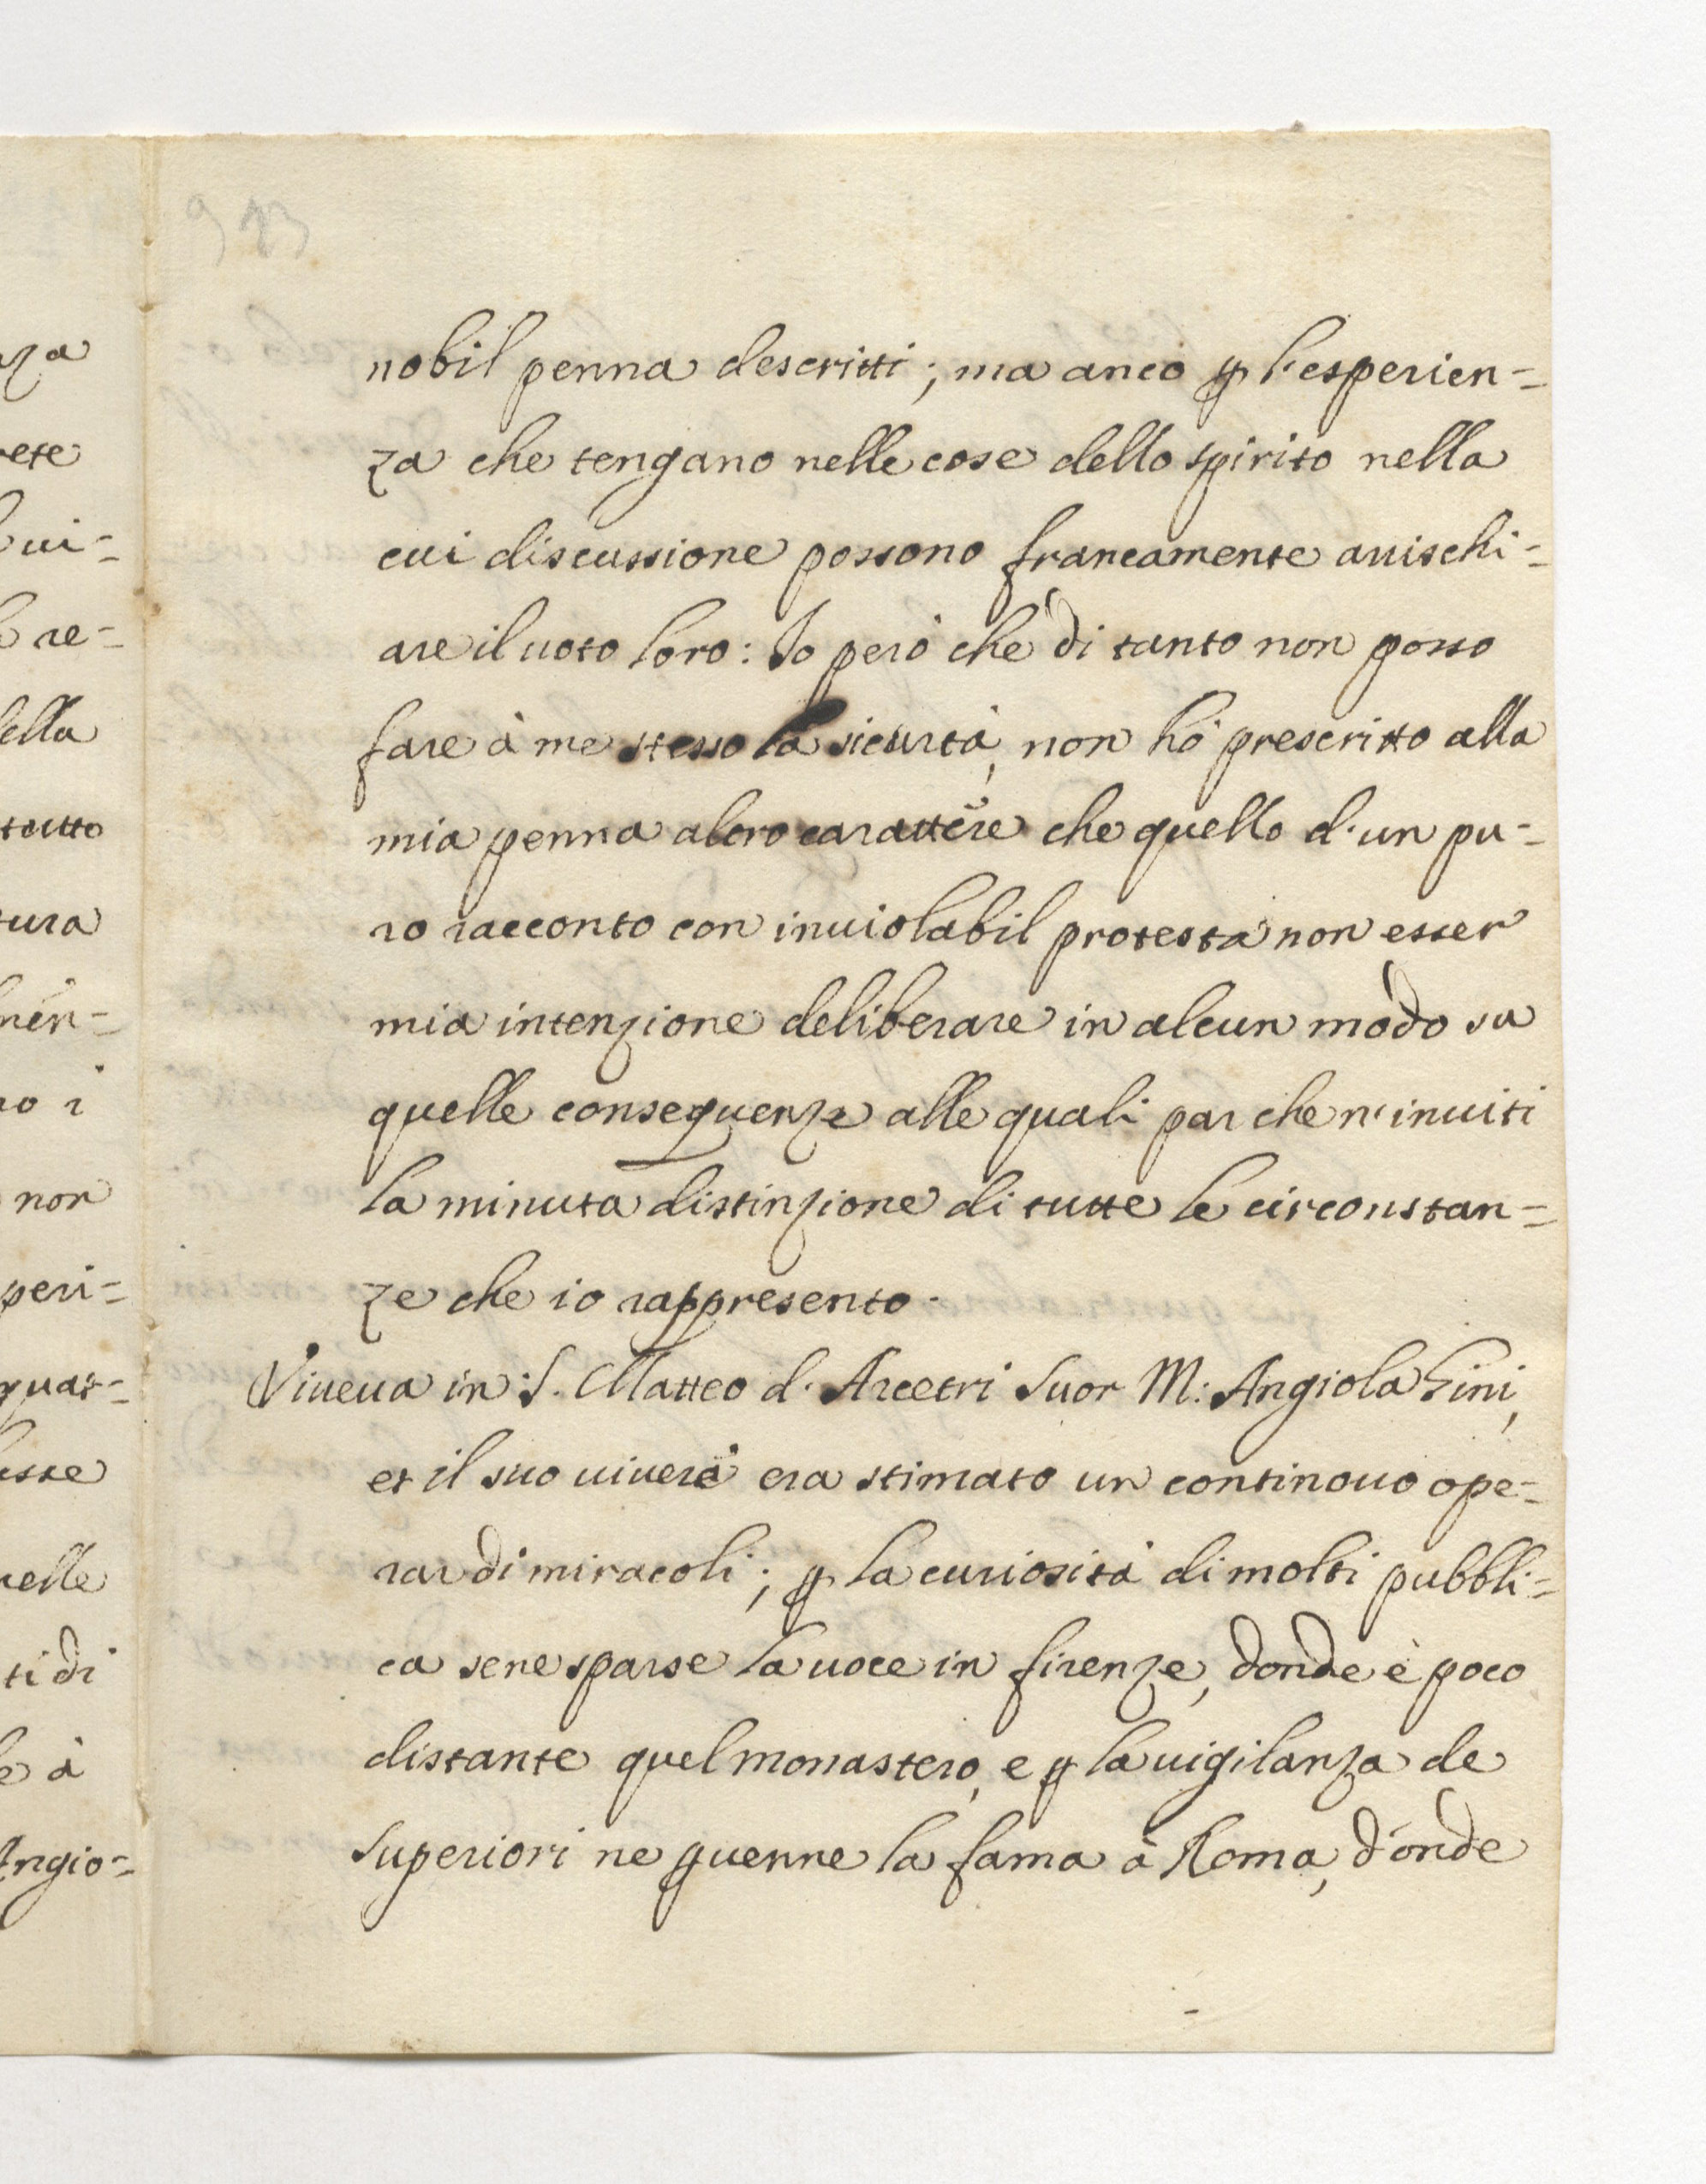 nobil penna descritti; ma anco ꝑ l'esperien=
za che tengano nelle cose dello spirito nella
cui discussione possono francamente auischi=
are il uoto loro: Io però che di tanto non posso
fare à me stesso la sicurtà, non hò prescritto alla
mia penna altro carattere che quello d'un pu=
ro racconto con inuiolabil protesta non esser
mia intenzione deliberare in alcun modo su
quelle conseguenze alle quali par che n'inuiti
la minuta distinzione di tutte le circonstan=
ze che io rappresento.
Viueua in S. Matteo d'Arcetri Suor M: Angiola Gini,
et il suo uiuere era stimato un continouo ope=
rar di miracoli; ꝑ la curiosità di molti pubbli=
ca se ne sparse la uoce in firenze, donde è poco
distante quel monastero, e ꝑ la uigilanza de
Superiori ne ꝑuenne la fama à Roma, d'onde